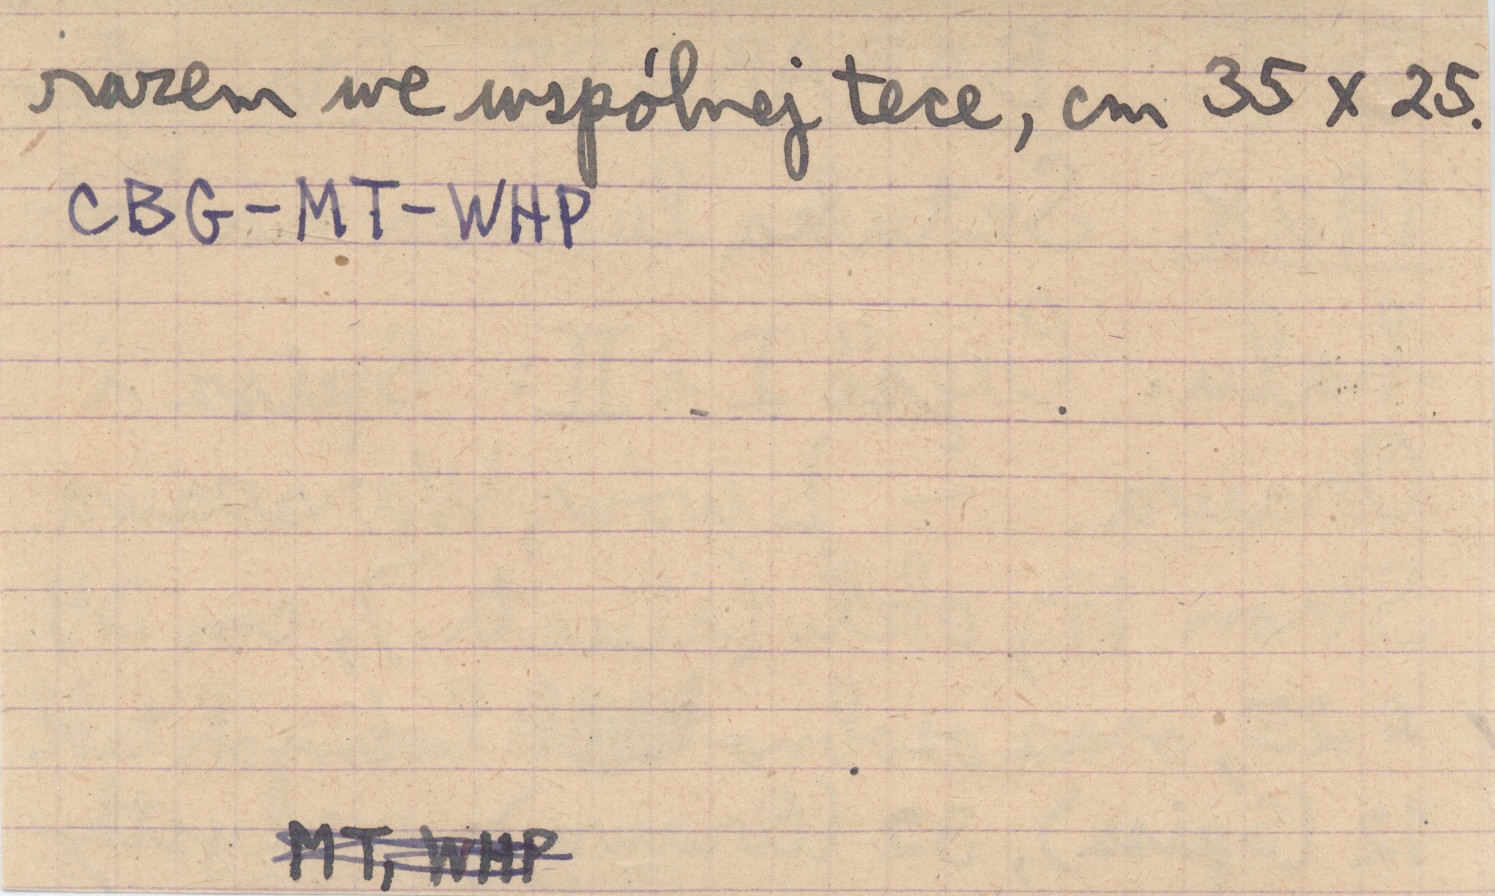 razem we wspólnej tece, cm 35 x 25.
CBG-MT-WHP
MT, WHP